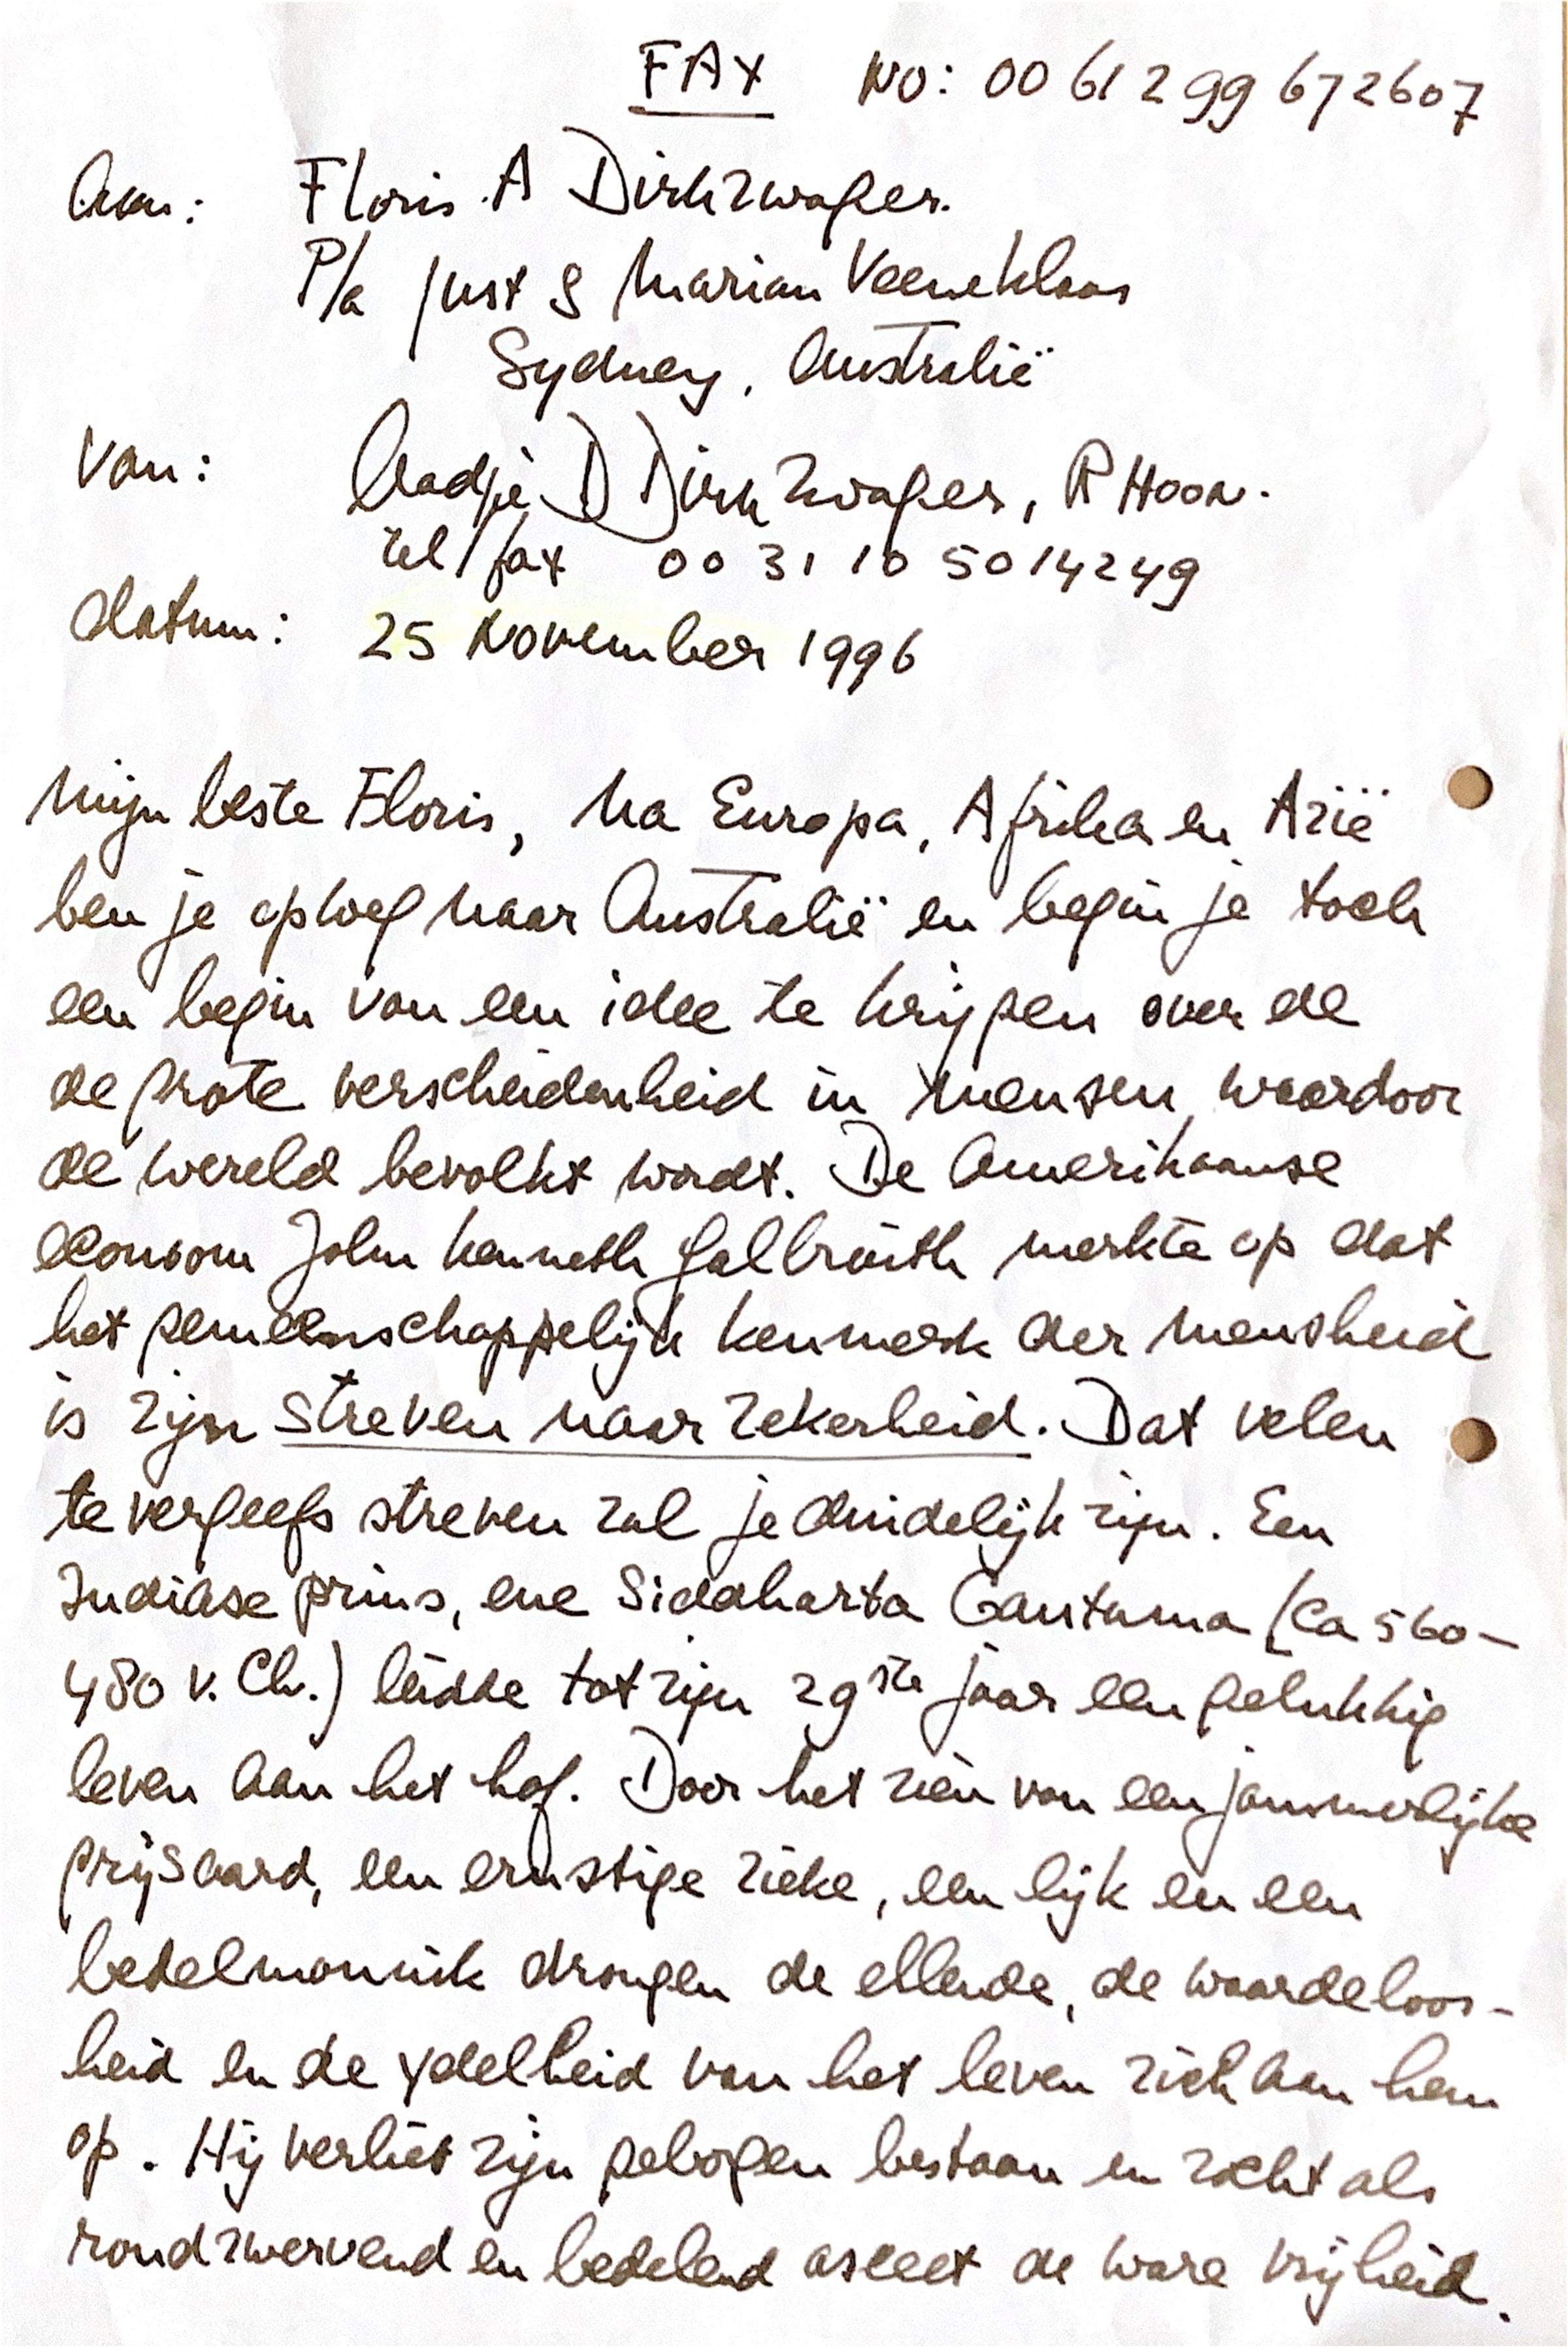 FAX NO: 00 61 2 99 672607
Aan: Floris A Dirkzwager.
P/a Just & Marian Veeneklaas
Sydney, Australië
Van: Aadje D Dirkzwager, R Hoon.
tel/fax 00 31 10 5014249
datum: 25 November 1996
Mijn beste Floris, Na Europa, Afrika en Azië
ben je op weg naar Australië en begin je toch
een begin van een idee te krijgen over de
de grote verscheidenheid in mensen waardoor
de wereld bevolkt wordt. De Amerikaanse
econoom John Kenneth Galbraith merkte op dat
het gemeenschappelijk kenmerk der mensheid
is zijn streven naar zekerheid. Dat velen
tevergeefs streven zal je duidelijk zijn. Een
Indiase prins, ene Siddharta Gautama (ca 560-
480 v. Chr.) leidde tot zijn 29ste jaar een gelukkig
leven aan het hof. Door het zien van een jammerlijke
grijsaard, een ernstige zieke, een lijk en een
bedelmonnik drongen de ellende, de waardeloos-
heid en de ydelheid van het leven zich aan hem
op. Hij verliet zijn gebogen bestaan en zocht als
rondzwervend en bedelend asceet de ware vrijheid.